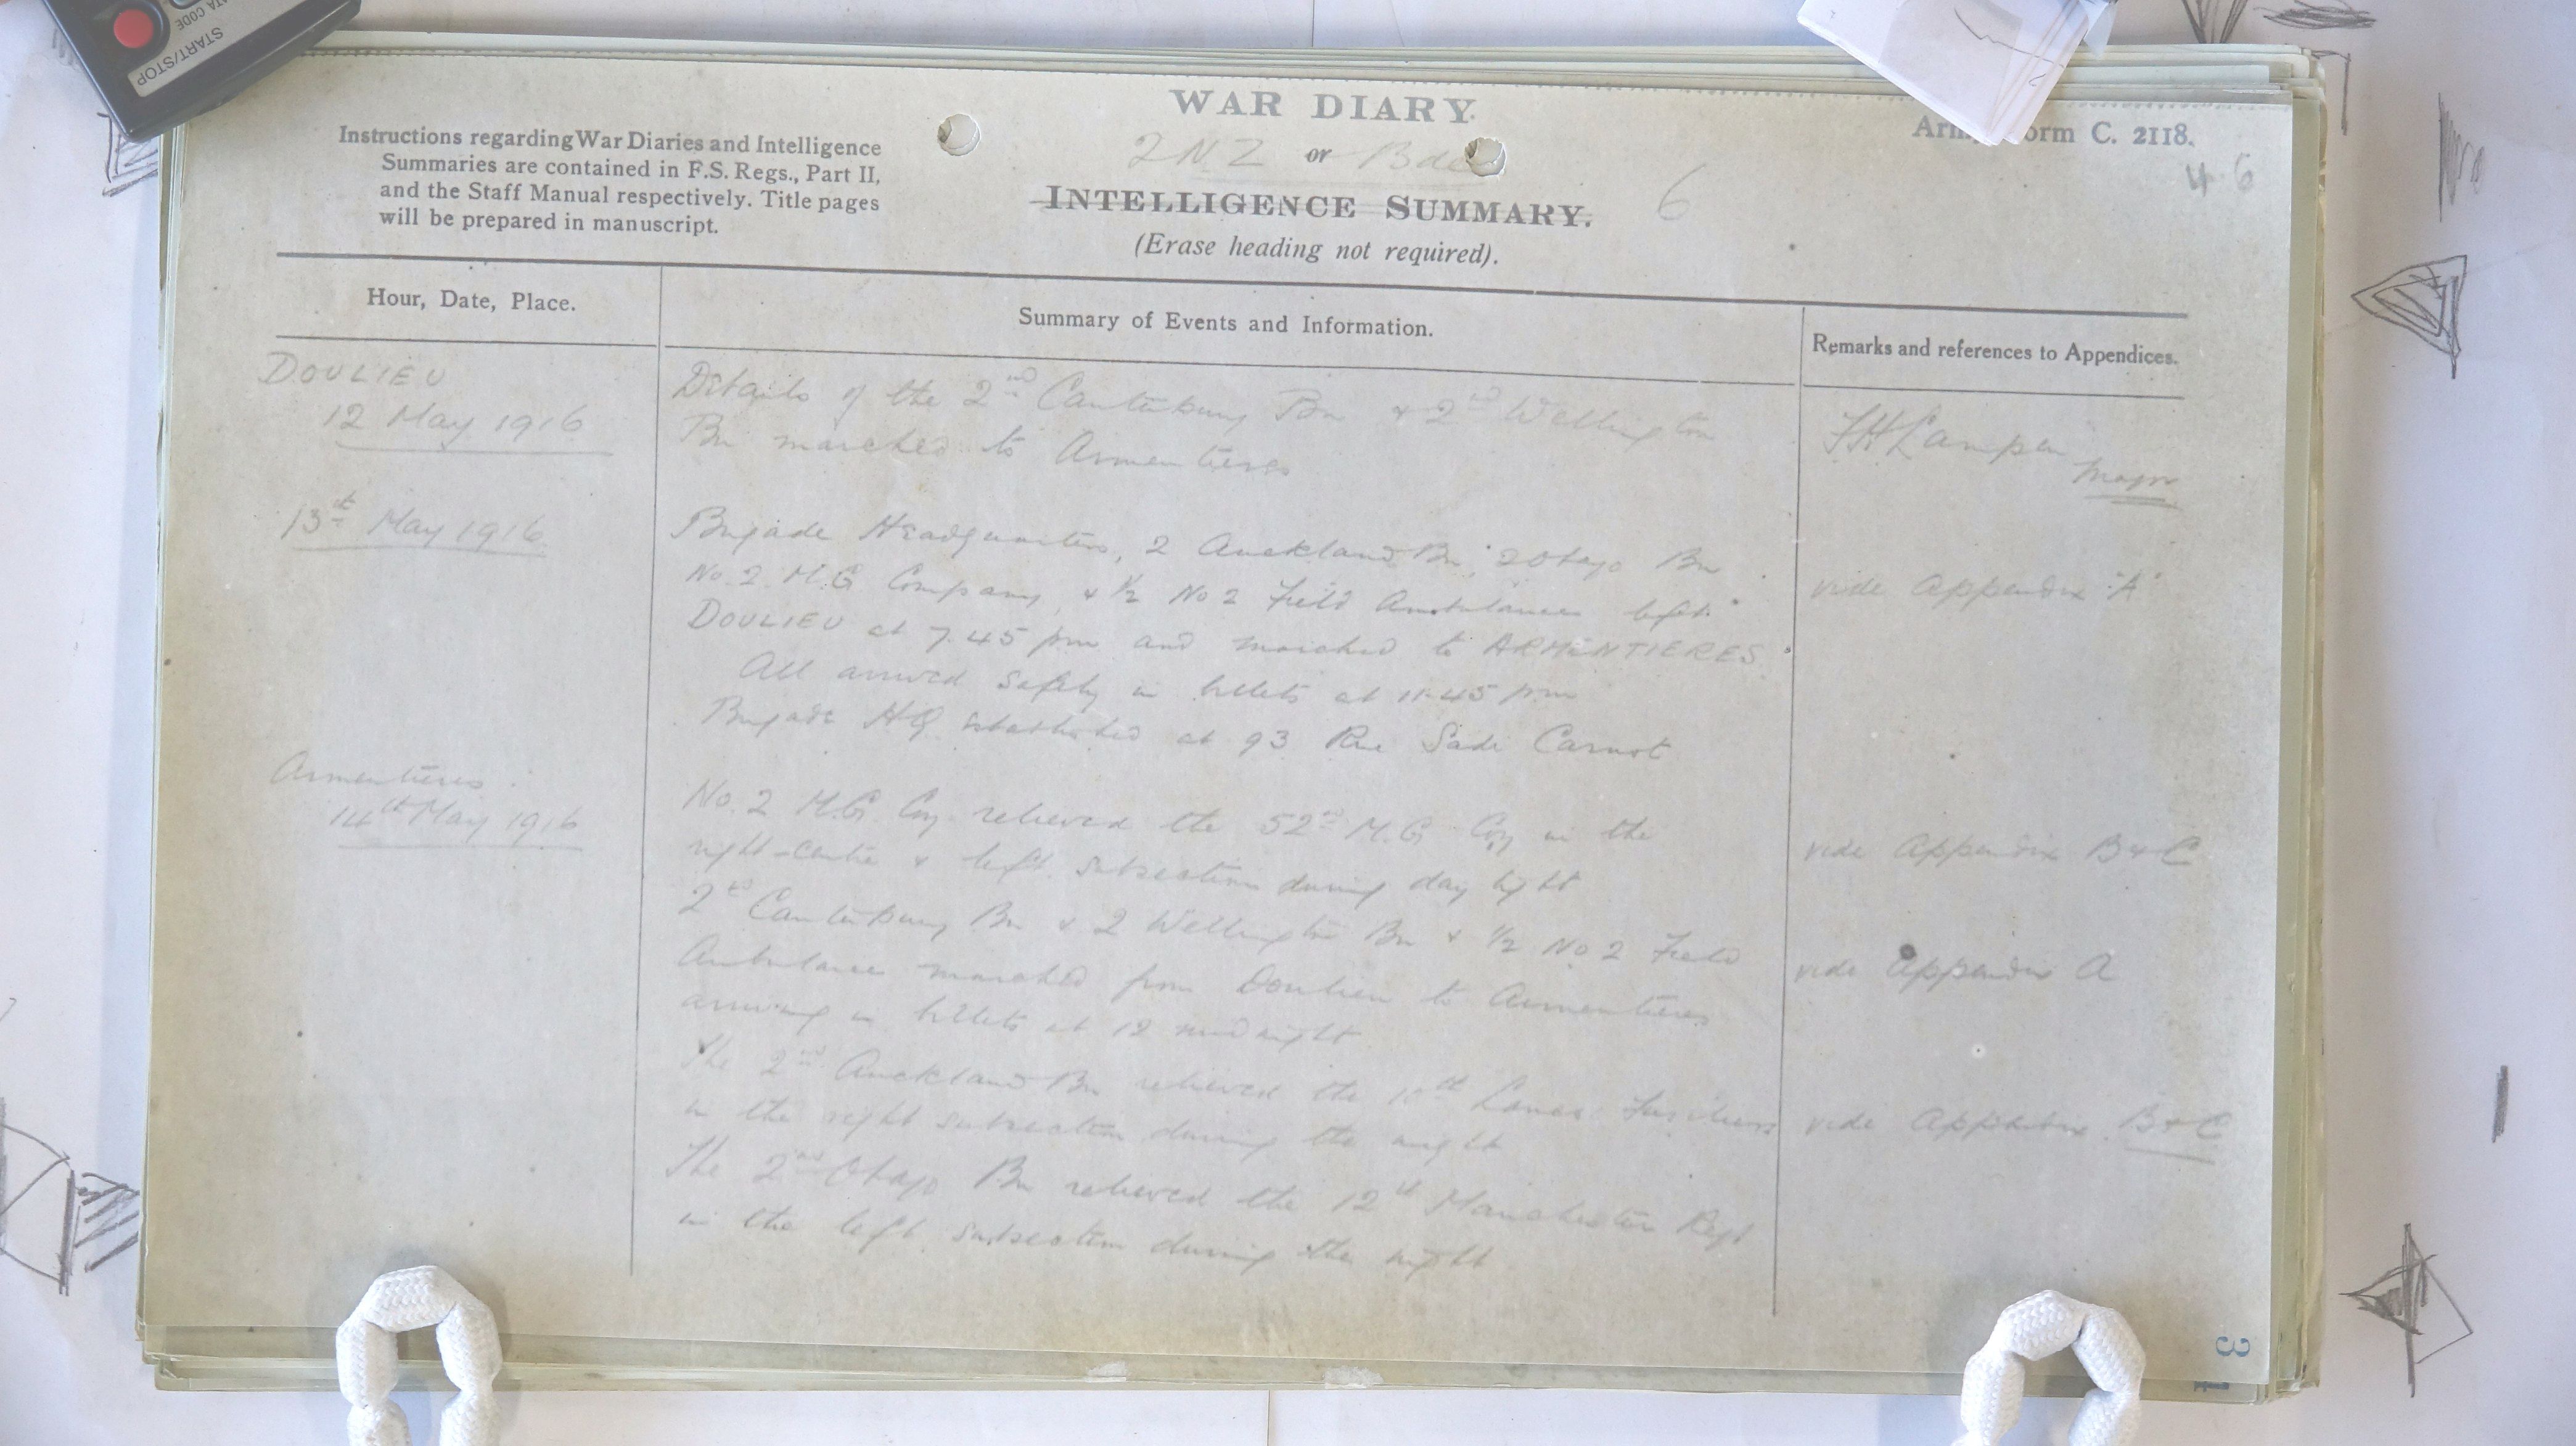 START/STOP
DATA CODE
WAR DIARY.
2 NZ or Bde
INTELLIGENCE SUMMARY. 6
(Erase heading not required).
Instructions regarding War Diaries and Intelligence
Summaries are contained in F.S. Regs., Part II,
and the Staff Manual respectively. Title pages
will be prepared in manuscript.
Army Form C. 2118.
46
Hour, Date, Place.
Summary of Events and Information.
Remarks and references to Appendices.
DOULIEU
12 May 1916
Details of the 2nd Canterbury Bn & 2nd Wellington
Bn marched to Armentieres
Major
13th May 1916
Brigade Headquarters, 2 Auckland Bn, 2 Otago Bn
No. 2 M.G Company, & ½ No 2 Field Ambulance left
DOULIEU at 7.45 pm and marched to ARMENTIERES
All arrived safely in billets at 11.45 pm
Brigade HQ established at 93 Rue Sadi Carnot
vide Appendix "A"
Armentieres
14th May 1916
No. 2 M.G. Coy relieved the 52nd M.G Coy in the
right-centre & left subsection during day light
vide Appendix B & C
2nd Canterbury Bn & 2 Wellington Bn & ½ No 2 Field
Ambulance marched from Doulieu to Armentieres
arriving in billets at 12 midnight
vide Appendix A
The 2nd Auckland Bn relieved the 10th Lancs Fusiliers
in the right subsection during the night
vide Appendix B & C
The 2nd Otago Bn relieved the 12th Manchester Regt
in the left subsection during the night
3